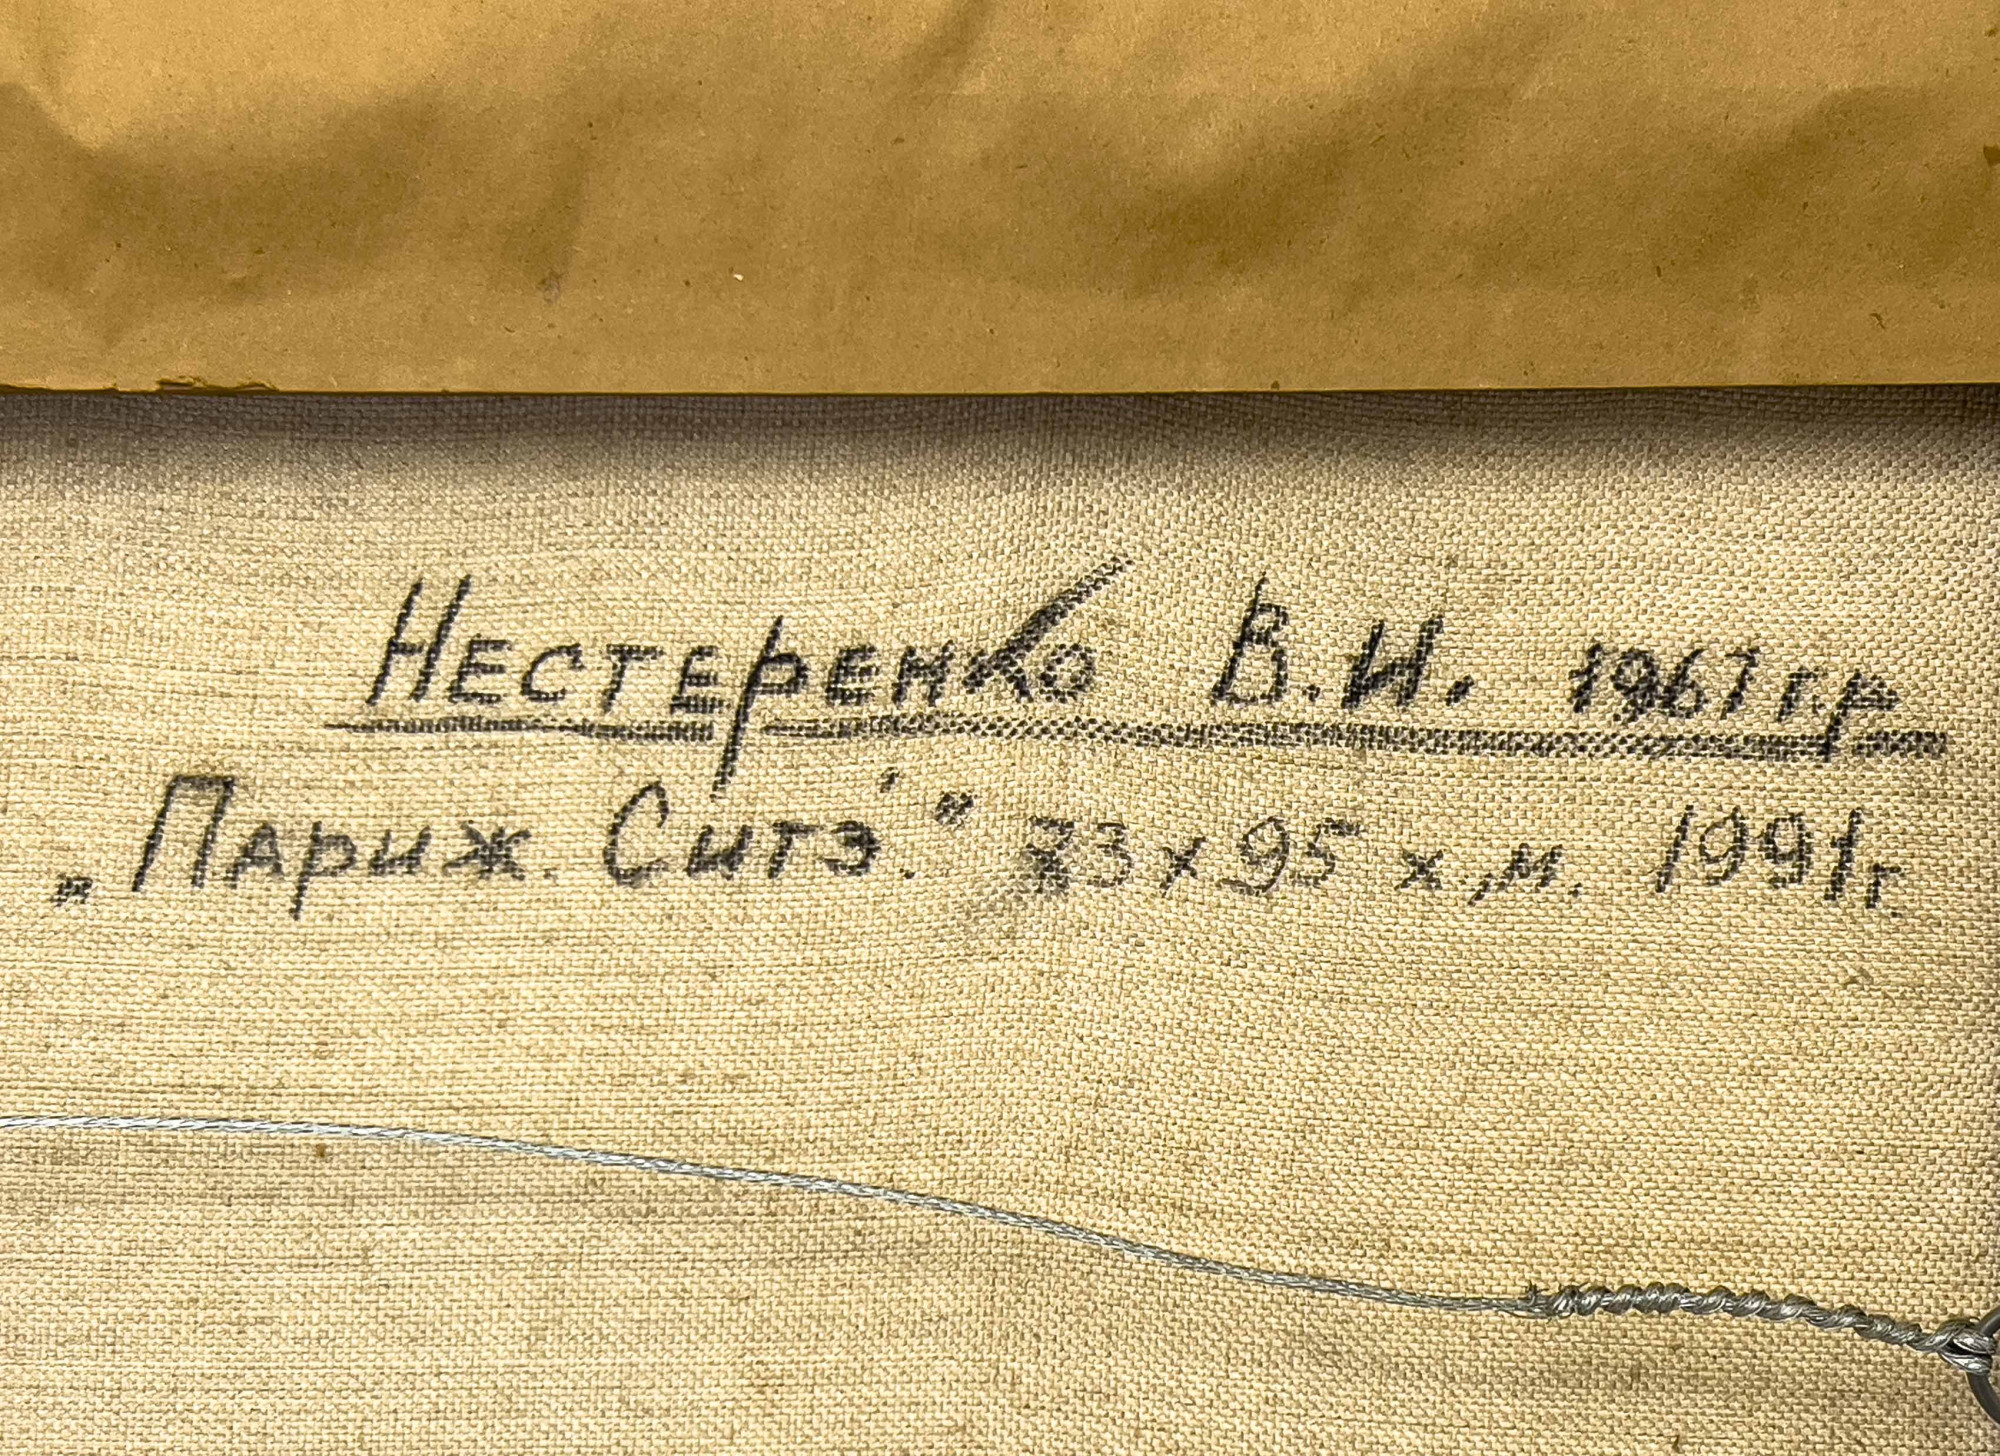 Нестеренко В.И. 1967 г.р
„Париж. Ситэ́." 73 х 95 х.м. 1991г.